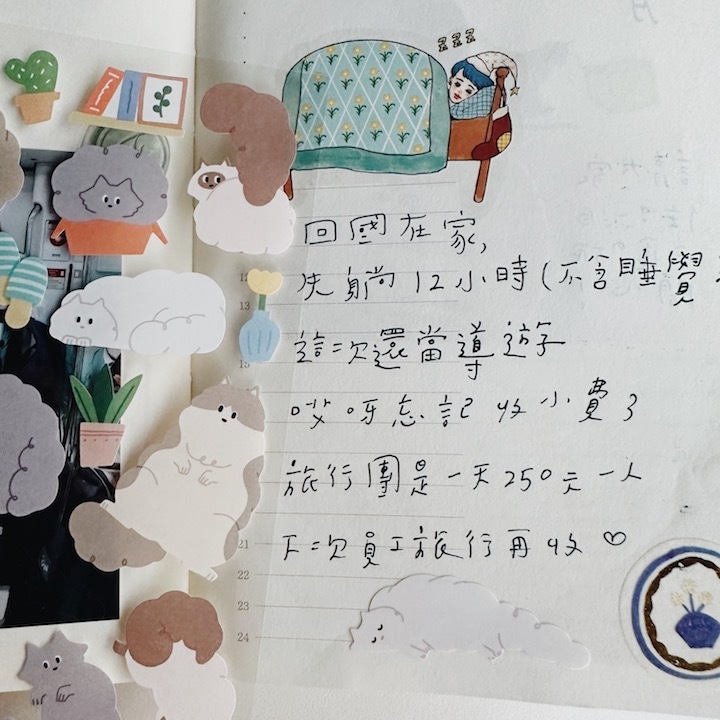 zzz
回國在家,
先躺12小時(不含睡覺
這次還當導遊
哎呀忘記收小費了
旅行團是一天250元一人
下次員工旅行再收♡
13
21
22
23
24